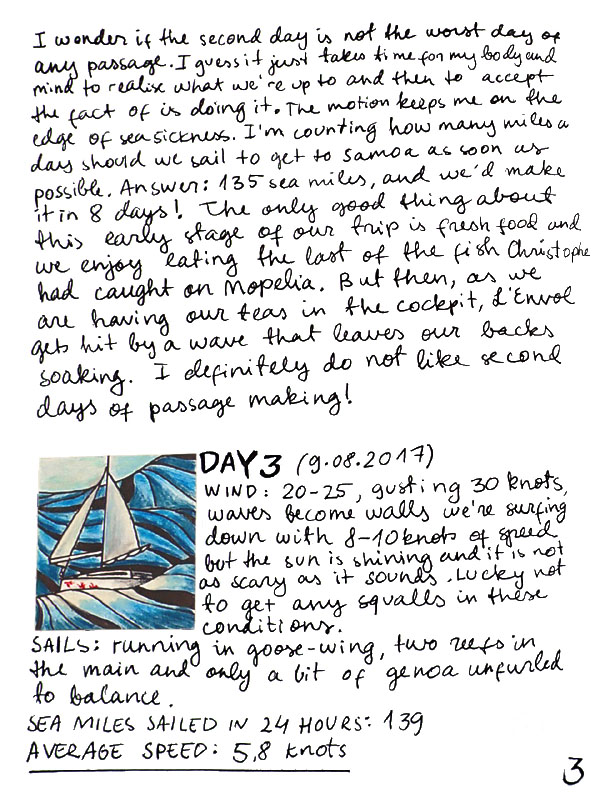 I wonder if the second day is not the worst day of
any passage. I guess it just takes time for my body and
mind to realise what we're up to and then to accept
the fact of is doing it. The motion keeps me on the
edge of seasickness. I'm counting how many miles a
day should we sail to get to Samoa as soon as
possible. Answer: 135 sea miles, and we'd make
it in 8 days! The only good thing about
this early stage of our trip is fresh food and
we enjoy eating the last of the fish Christophe
had caught on Mopelia. But then, as we
are having our teas in the cockpit, L'Envol
gets hit by a wave that leaves our backs
soaking. I definitely do not like second
days of passage making!
DAY 3 (9.08.2017)
WIND: 20-25, gusting 30 knots,
waves become walls we're surfing
down with 8-10 knots of speed
but the sun is shining and it is not
as scary as it sounds. Lucky not
to get any squalls in these
conditions.
SAILS: running in goose-wing, two reefs in
the main and only a bit of genoa unfurled
to balance.
SEA MILES SAILED IN 24 HOURS: 139
AVERAGE SPEED: 5,8 knots
3